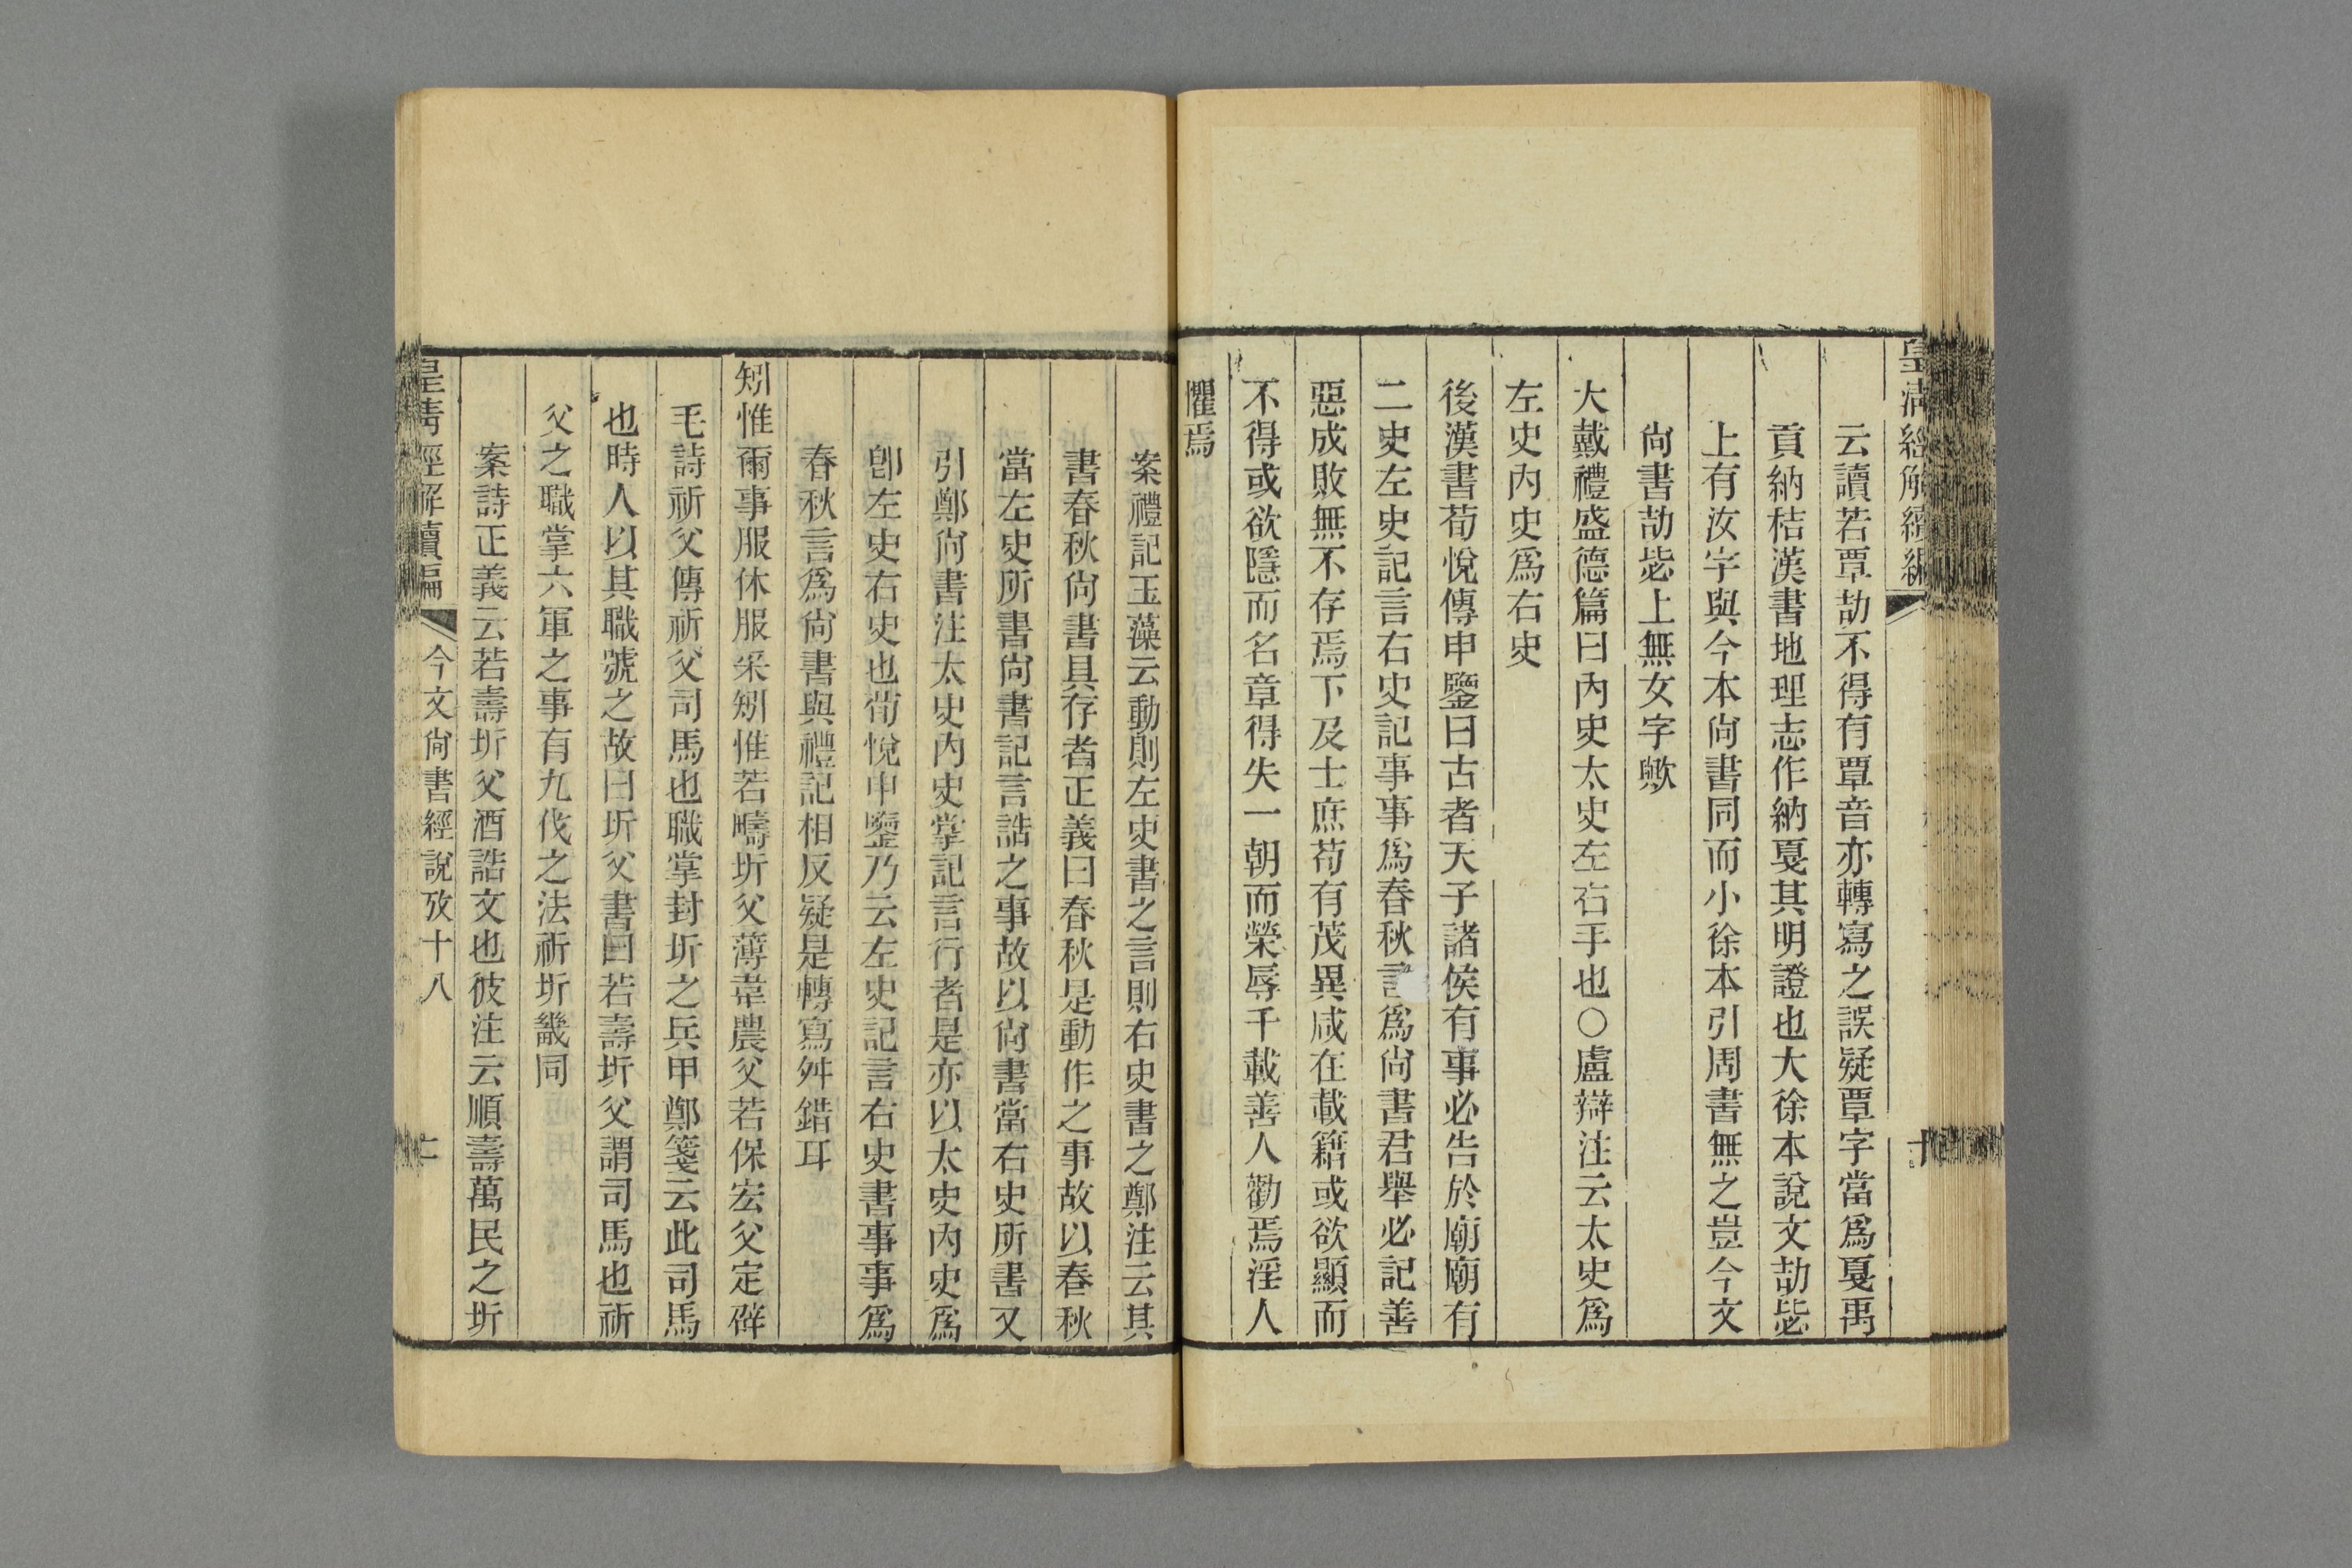 皇清經解續編
十
云讀若覃劼不得有覃音亦轉寫之誤疑覃字當爲戛禹
貢納秸漢書地理志作納戛其明證也大徐本說文劼毖
上有汝字與今本尙書同而小徐本引周書無之豈今文
尙書劼毖上無女字歟
大戴禮盛德篇曰內史太史左右手也○盧辯注云太史爲
左史內史爲右史
後漢書荀悅傳申鑒曰古者天子諸侯有事必告於廟廟有
二史左史記言右史記事事爲春秋言爲尙書君舉必記善
惡成敗無不存焉下及士庶苟有茂異咸在載籍或欲顯而
不得或欲隱而名章得失一朝而榮辱千載善人勸焉淫人
懼焉
案禮記玉藻云動則左史書之言則右史書之鄭注云其
書春秋尙書具存者正義曰春秋是動作之事故以春秋
當左史所書尙書記言誥之事故以尙書當右史所書又
引鄭尙書注太史內史掌記言行者是亦以太史內史爲
卽左史右史也荀悅申鑒乃云左史記言右史書事事爲
春秋言爲尙書與禮記相反疑是轉寫舛錯耳
矧惟爾事服休服采矧惟若疇圻父薄韋農父若保宏父定辟
毛詩祈父傳祈父司馬也職掌封圻之兵甲鄭箋云此司馬
也時人以其職號之故曰圻父書曰若壽圻父謂司馬也祈
父之職掌六軍之事有九伐之法祈圻畿同
案詩正義云若壽圻父酒誥文也彼注云順壽萬民之圻
皇清經解續編
今文尙書經說攷十八